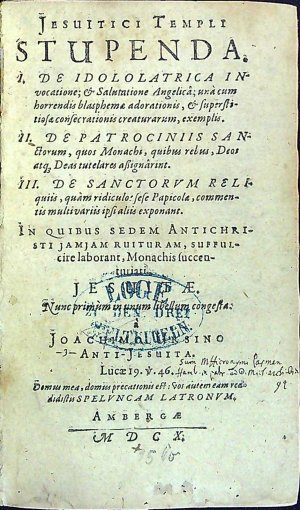 JESUITICI TEMPLI
STUPENDA.
I. DE IDOLOLATRICA IN-
vocatione; & Salutatione Angelicâ; unà cum
horrendis blasphemæ adorationis, & supersti-
tiosæ consecrationis creaturarum, exemplis.
II. DE PATROCINIIS SAN-
ctorum, quos Monachi, quibus rebus, Deos
atq, Deas tutelares aßignârint.
III. DE SANCTORVM RELI-
quiis, quàm ridiculo: sese Papicolæ, commen-
tis multivariis ipsi aliis exponant.
IN QUIBUS SEDEM ANTICHRI-
STI JAMJAM RUITURAM, SUFFUL-
cire laborant, Monachis succen-
turiati
JESUIDÆ.
Nunc primùm in unum libellum congesta:
à
JOACHIMO URSINO
ANTI-JESUITA.
LOGE
DEN DREI
Lucæ 19. v. 46.
Domus mea, domus precationis est: Vos autem eam red-
didistis SPELVNCAM LATRONVM.
AMBERGÆ
M DC X.